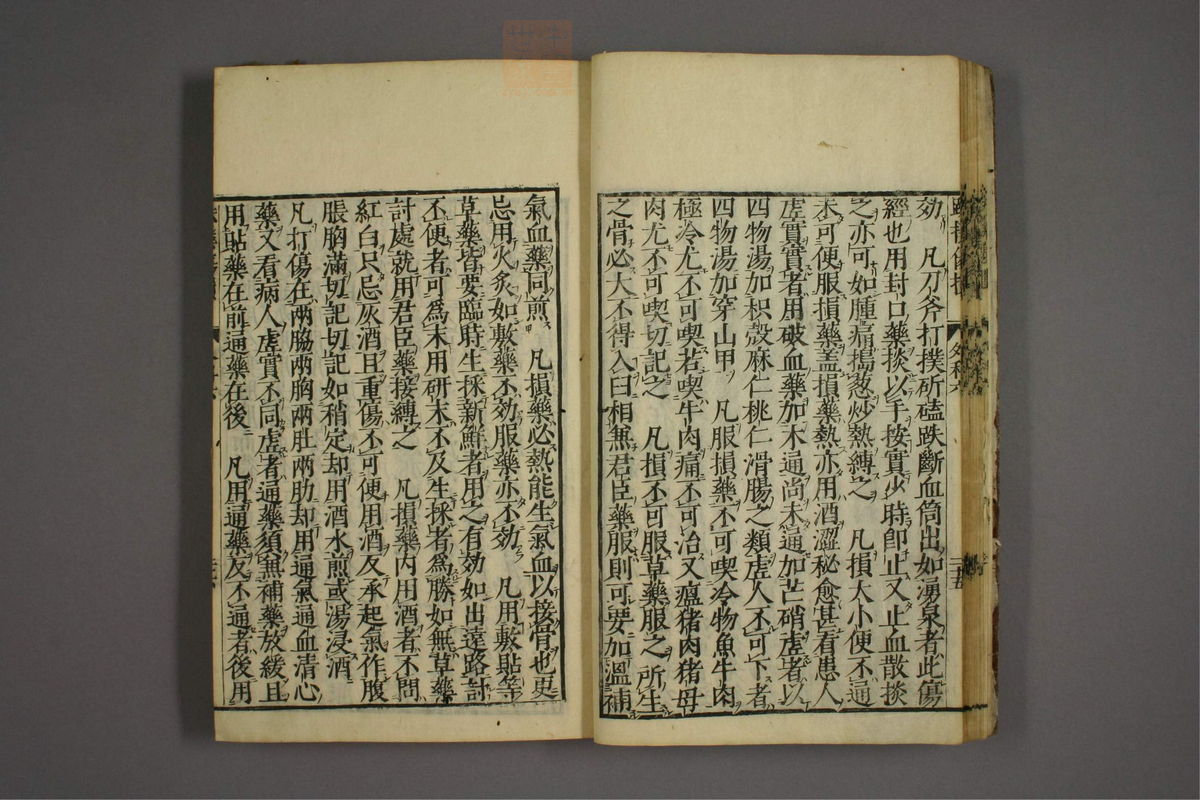 効 凡刀斧打撲斫磕跌斷血筒出如湧泉者此傷
經也用封口藥掞以手按實少時卽止又止血散掞
之亦可如腫痛搗葱炒熱縛之 凡損大小便不通
未可便服損藥盖損藥熱亦用酒澀秘愈甚看患人
虚實實者用破血藥加木通尚未通加芒硝虚者以
四物湯加枳殼麻仁桃仁滑腸之類虚人不可下者
四物湯加穿山甲 凡服損藥不可喫冷物魚牛肉
極冷尤不可喫若喫牛肉痛不可治又瘟猪肉猪母
肉尤不可喫切記之 凡損不可服草藥服之所生
之骨必大不得入臼相無君臣藥服則可要加溫補
氣血藥同煎 凡損藥必熱能生氣血以接骨也更
忌用火炙如敷藥不効服藥亦不効 凡用敷貼等
草藥皆要臨時生採新鮮者用之有効如出遠路討
不便者可爲末用研末不及生採者爲勝如無草藥
討處就用君臣藥接縛之 凡損藥内用酒者不問
紅白只忌灰酒且重傷不可便用酒反承起氣作腹
脹胸滿切記切記如稍定却用酒水煎或湯浸酒
凡打傷在兩脇兩胸兩肚兩肋却用通氣通血清心
藥又看病人虚實不同虚者通藥須無補藥放緩且
用貼藥在前通藥在後 凡用通藥反不通者後用